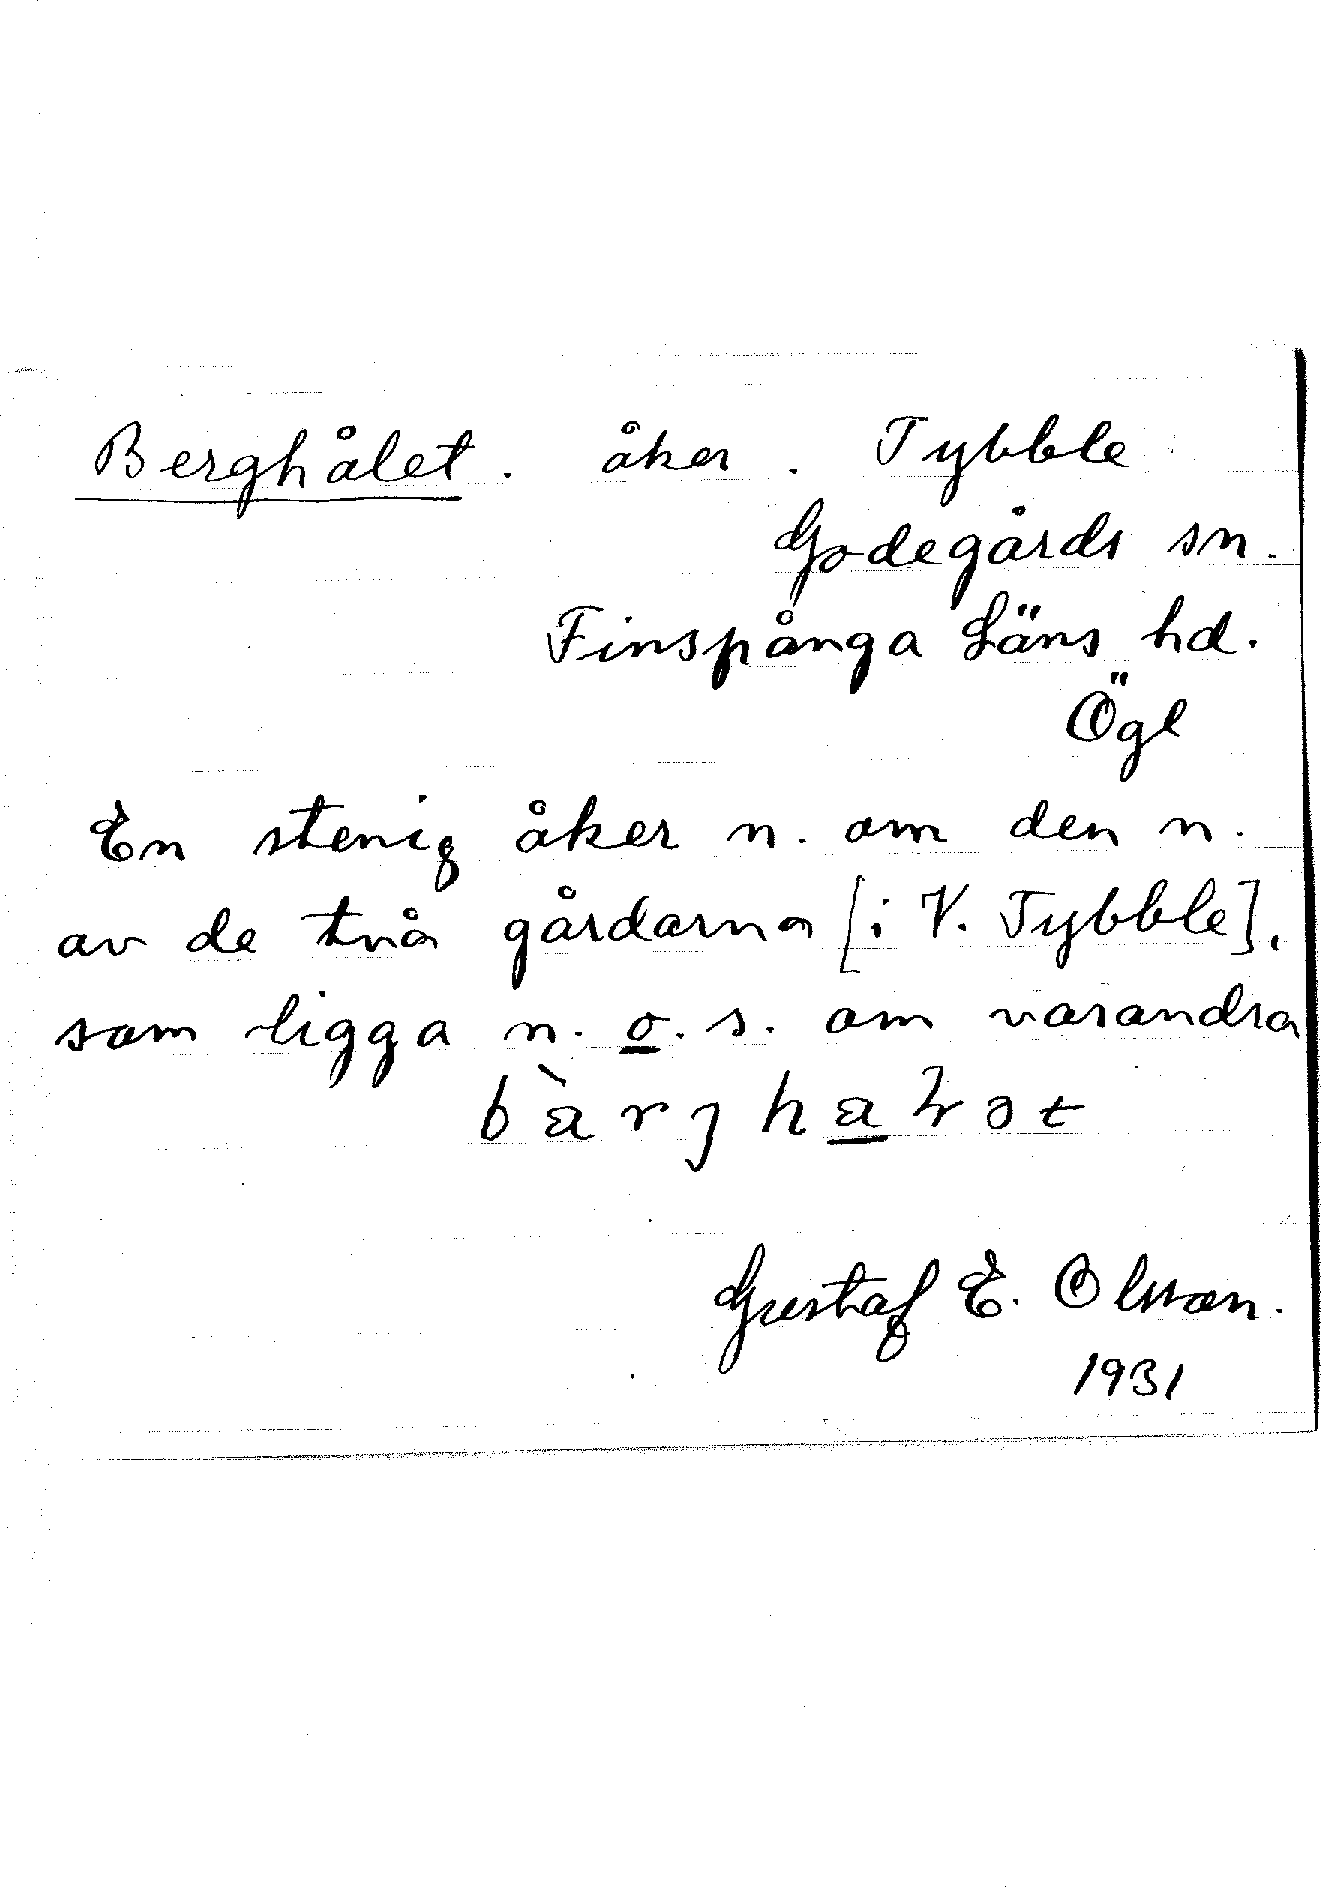 Berghålet. åker. Tybble
Godegårds sn.
Finspånga Läns hd.
Ögl
En stenig åker n. om den n.
av de två gårdarna [i V. Tybble],
som ligga n. o. s. om varandra
Gustaf E. Olsson.
1931